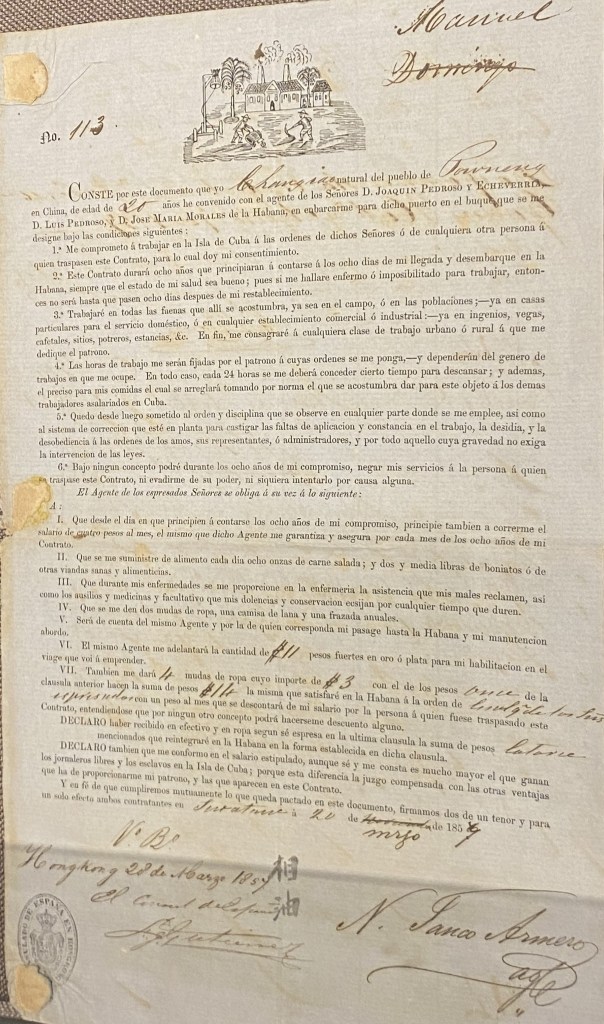 Manuel
Domingo
No. 113.
CONSTE por este documento que yo natural del pueblo de
en China, de edad de 20 años he convenido con el agente de los Señores D. JOAQUIN PEDROSO Y ECHEVERRIA,
D. LUIS PEDROSO, y D. JOSÉ MARIA MORALES de la Habana, en embarcarme para dicho puerto en el buque que se me
designe bajo las condiciones siguientes:
1.ª Me comprometo á trabajar en la Isla de Cuba á las ordenes de dichos Señores ó de cualquiera otra persona á
quien traspasen este Contrato, para lo cual doy mi consentimiento.
2.ª Este Contrato durará ocho años que principiaran á contarse á los ocho dias de mi llegada y desembarque en la
Habana, siempre que el estado de mi salud sea bueno; pues si me hallare enfermo ó imposibilitado para trabajar, enton-
ces no será hasta que pasen ocho dias despues de mi restablecimiento.
3.ª Trabajaré en todas las faenas que allí se acostumbra, ya sea en el campo, ó en las poblaciones;—ya en casas
particulares para el servicio doméstico, ó en cualquier establecimiento comercial ó industrial:—ya en ingenios, vegas,
cafetales, sitios, potreros, estancias, &c. En fin, me consagraré á cualquiera clase de trabajo urbano ó rural á que me
dedique el patrono.
4.ª Las horas de trabajo me serán fijadas por el patrono á cuyas ordenes se me ponga,—y dependerán del genero de
trabajos en que me ocupe. En todo caso, cada 24 horas se me deberá conceder cierto tiempo para descansar; y ademas,
el preciso para mis comidas el cual se arreglará tomando por norma el que se acostumbra dar para este objeto á los demas
trabajadores asalariados en Cuba.
5.ª Quedo desde luego sometido al orden y disciplina que se observe en cualquier parte donde se me emplee, asi como
al sistema de correccion que esté en planta para castigar las faltas de aplicacion y constancia en el trabajo, la desidia, y la
desobediencia á las ordenes de los amos, sus representantes, ó administradores, y por todo aquello cuya gravedad no exiga
la intervencion de las leyes.
6.ª Bajo ningun concepto podré durante los ocho años de mi compromiso, negar mis servicios á la persona á quien
se traspase este Contrato, ni evadirme de su poder, ni siquiera intentarlo por causa alguna.
El Agente de los espresados Señores se obliga á su vez á lo siguiente:
A:
I. Que desde el dia en que principien á contarse los ocho años de mi compromiso, principie tambien a correrme el
salario de cuatro pesos al mes, el mismo que dicho Agente me garantiza y asegura por cada mes de los ocho años de mi
Contrato.
II. Que se me suministre de alimento cada dia ocho onzas de carne salada; y dos y media libras de boniatos ó de
otras viandas sanas y alimenticias.
III. Que durante mis enfermedades se me proporcione en la enfermeria la asistencia que mis males reclamen, asi
como los ausilios y medicinas y facultativo que mis dolencias y conservacion ecsijan por cualquier tiempo que duren.
IV. Que se me den dos mudas de ropa, una camisa de lana y una frazada anuales.
V. Será de cuenta del mismo Agente y por la de quien corresponda mi pasage hasta la Habana y mi manutencion
abordo.
VI. El mismo Agente me adelantará la cantidad de $11 pesos fuertes en oro ó plata para mi habilitacion en el
viage que voi á emprender.
VII. Tambien me dará 4 mudas de ropa cuyo importe de $3 con el de los pesos once de la
clausula anterior hacen la suma de pesos $14 la misma que satisfaré en la Habana á la orden de
espresados con un peso al mes que se descontará de mi salario por la persona á quien fuese traspasado este
Contrato, entendiendose que por ningun otro concepto podrá hacerseme descuento alguno.
DECLARO haber recibido en efectivo y en ropa segun sé espresa en la ultima clausula la suma de pesos catorce
mencionados que reintegraré en la Habana en la forma establecida en dicha clausula.
DECLARO tambien que me conformo en el salario estipulado, aunque sé y me consta es mucho mayor el que ganan
los jornaleros libres y los esclavos en la Isla de Cuba; porque esta diferencia la juzgo compensada con las otras ventajas
que ha de proporcionarme mi patrono, y las que aparecen en este Contrato.
Y en fé de que cumpliremos mutuamente lo que queda pactado en este documento, firmamos dos de un tenor y para
un solo efecto ambos contratantes en á 20 de mrzo de 1857
Vº Bº
Hongkong 28 de Marzo 1857
El Consul de España
相
油
N. Tanco Armero
agte